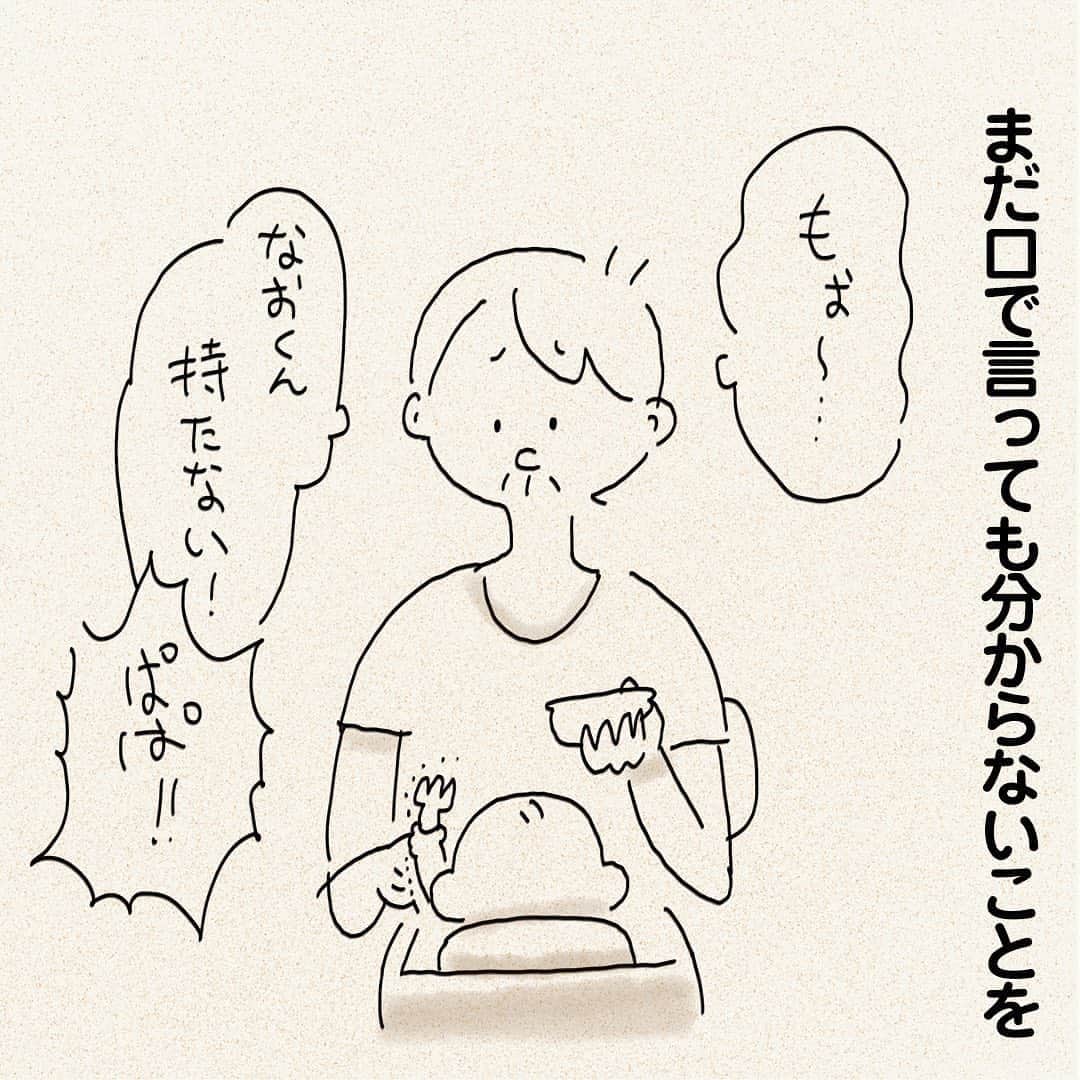 まだ口で言っても分からないことを
もぉ〜…
なおくん
持たない！
ぱぱ!!